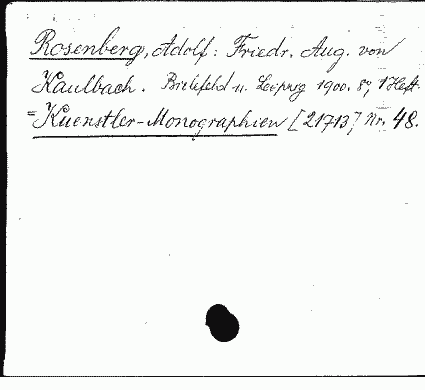 Rosenberg, Adolf: Friedr. Aug. von
Kaulbach. Bielefeld u. Leipzig 1900. 8°, 1 Heft.
= Kuenstler-Monographien [21713] Nr. 48.